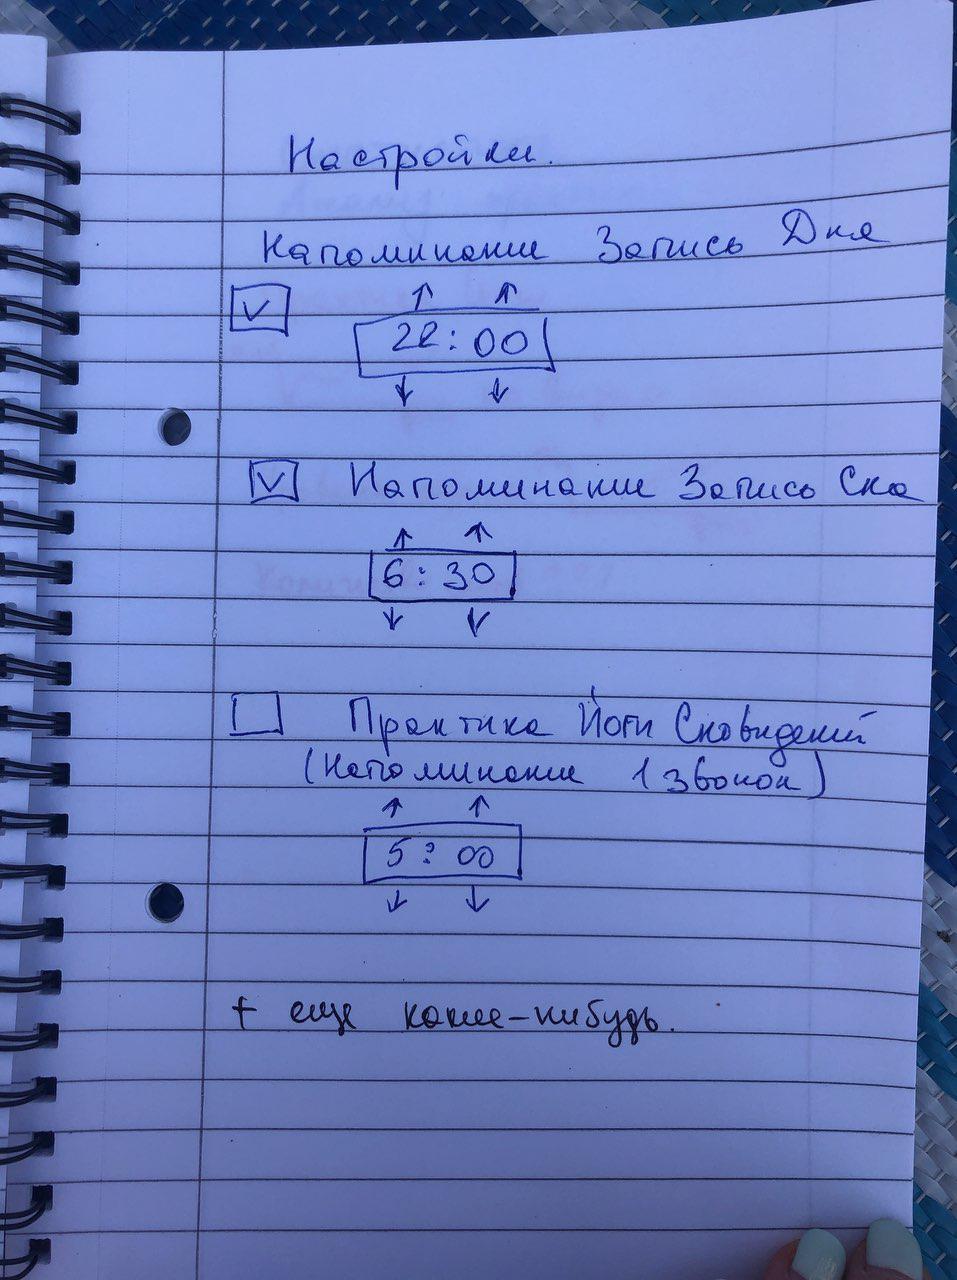 Настройки.
Напоминание Запись Дня
V
22:00
V Напоминание Запись Сна
6:30
Практика Йоги Сновидений
(Напоминание 1 звонок)
5:00
+ еще какие-нибудь.